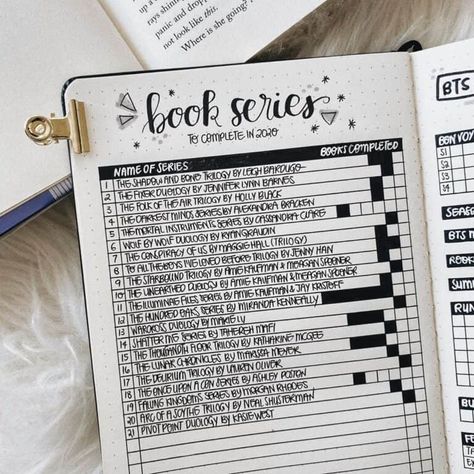 panic and drop
not look like this.
Where is she going?
book series
TO COMPLETE IN 2020
NAME OF SERIES BOOKS COMPLETED
1 THE SHADOW AND BONE TRILOGY BY LEIGH BARDUGO
2 THE FIXER DUOLOGY BY JENNIFER LYNN BARNES
3 THE FOLK OF THE AIR TRILOGY BY HOLLY BLACK
4 THE DARKEST MINDS SERIES BY ALEXANDRA BRACKEN
5 THE MORTAL INSTRUMENTS SERIES BY CASSANDRA CLARE
6 WOLF BY WOLF DUOLOGY BY RYAN GRAUDIN
7 THE CONSPIRACY OF US BY MAGGIE HALL (TRILOGY)
8 TO ALL THE BOYS I'VE LOVED BEFORE TRILOGY BY JENNY HAN
9 THE STARBOUND TRILOGY BY AMIE KAUFMAN & MEAGAN SPOONER
10 THE UNEARTHED DUOLOGY BY AMIE KAUFMAN & MEAGAN SPOONER
11 THE ILLUMINAE FILES SERIES BY AMIE KAUFMAN & JAY KRISTOFF
12 THE HUNDRED OAKS SERIES BY MIRANDA KENNEALLY
13 WARCROSS DUOLOGY BY MARIE LU
14 SHATTER ME SERIES BY TAHEREH MAFI
15 THE THOUSANDTH FLOOR TRILOGY BY KATHARINE MCGEE
16 THE LUNAR CHRONICLES BY MARISSA MEYER
17 THE DELIRIUM TRILOGY BY LAUREN OLIVER
18 THE ONCE UPON A CON SERIES BY ASHLEY POSTON
19 FALLING KINGDOMS SERIES BY MORGAN RHODES
20 ARC OF A SCYTHE TRILOGY BY NEAL SHUSTERMAN
21 PIVOT POINT DUOLOGY BY KASIE WEST
BTS
BON VOY
S1
S2
S3
S4
SEAS
BTS
ROOK
SUM
RUN
BU